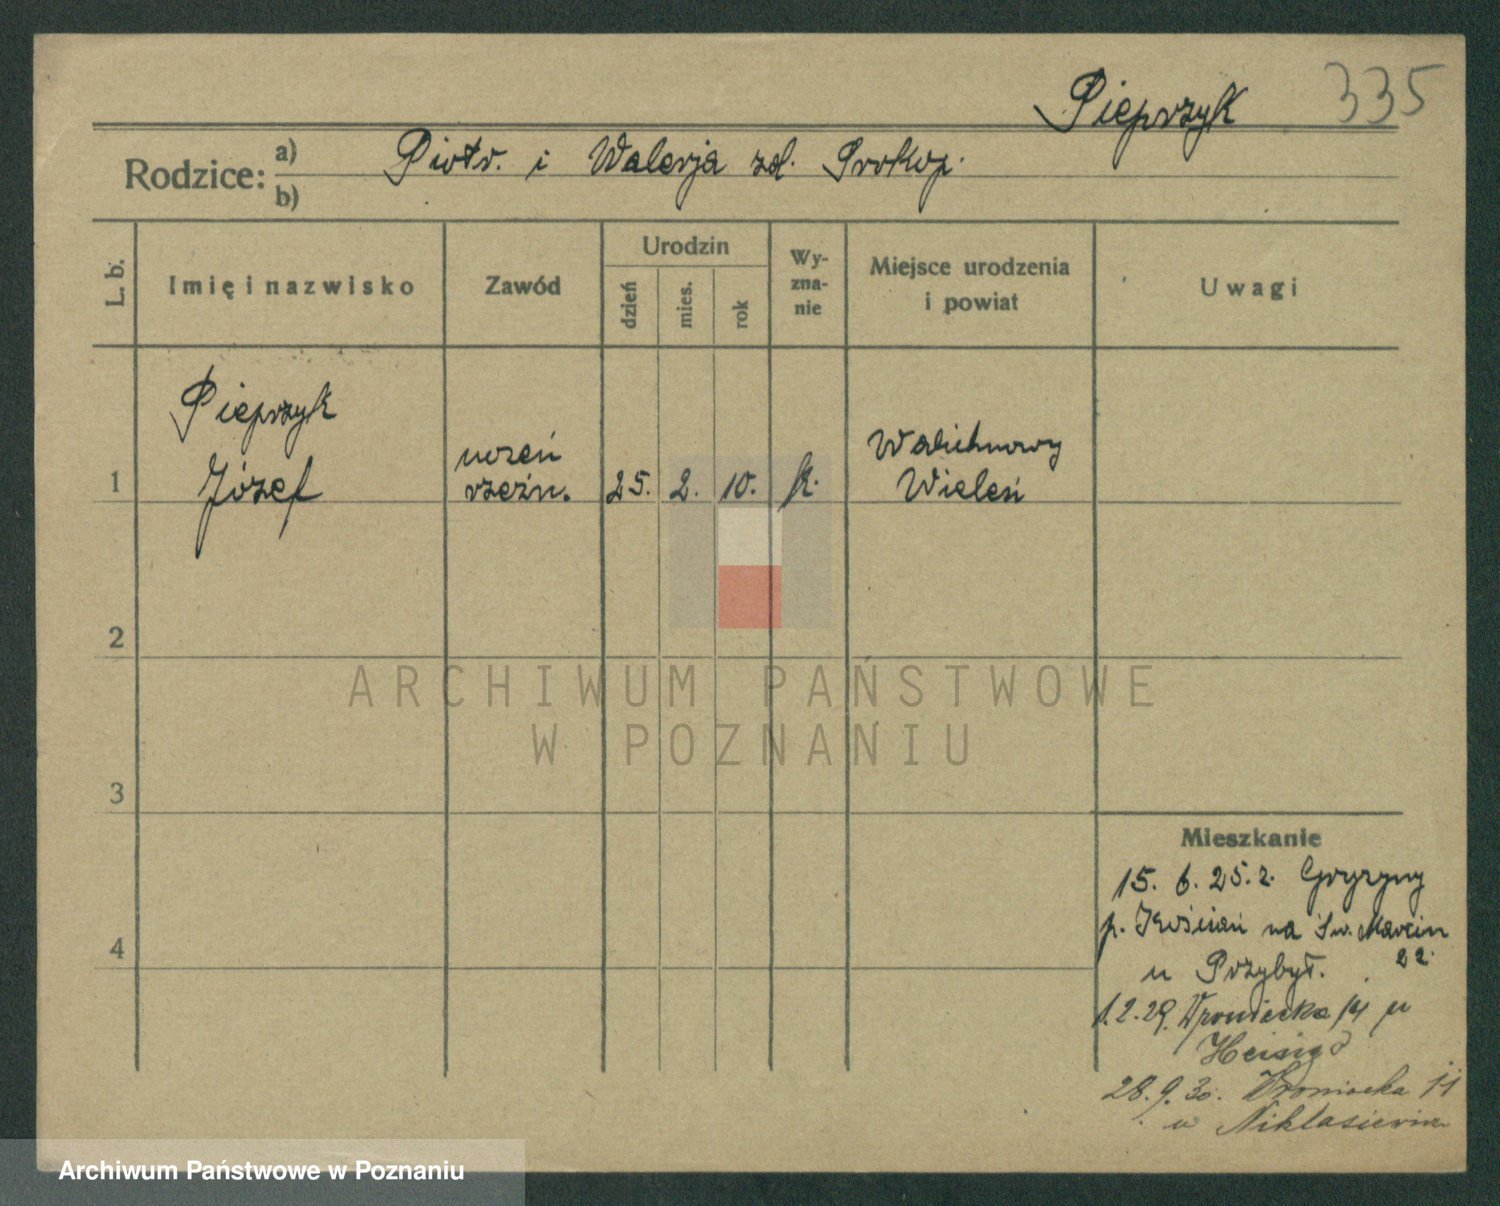 Pieprzyk 335
Rodzice: a) b)
Piotr. i Walerja zd. Prokop.
L. b.
Imię i nazwisko
Zawód
Urodzin
dzień
mies.
rok
Wy-
zna-
nie
Miejsce urodzenia
i powiat
Uwagi
Pieprzyk
Józef
1
uczeń
rzeźn.
25. 2. 10.
k.
Wieleń
2
3
4
Mieszkanie
15. 6. 25. z Gryzyny
p. Kościan na Św. Marcin
22.
u Przybył.
1.2.29. Wroniecka 14 u
28.9.30. Wroniecka 11
u Niklasiewicz
ARCHIWUM PAŃSTWOWE
W POZNANIU
Archiwum Państwowe w Poznaniu